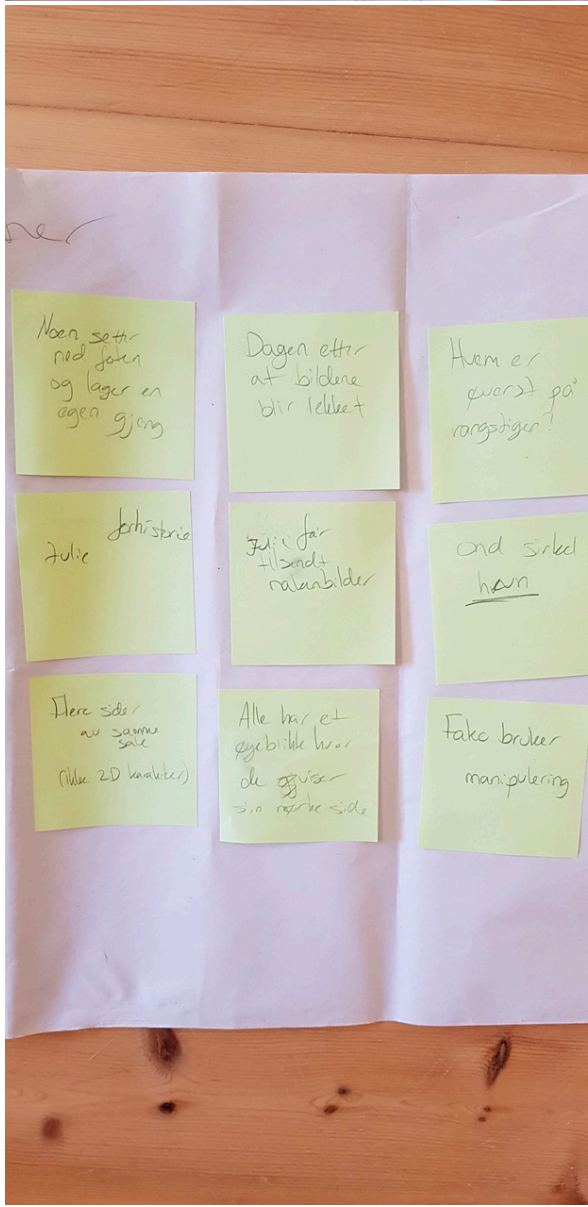 Noen setter
ned foten
og lager en
egen gjeng
Dagen etter
at bildene
blir lekket
Hvem er
øverst på
rangstigen?
forhistorie
Julie
Julie får
tilsendt
nakenbilder
ond sirkel
hevn
Flere sider
av samme
sak
(ikke 2D karakter)
Alle har et
øyeblikk hvor
de viser
sin mørke side
Fake bruker
manipulering